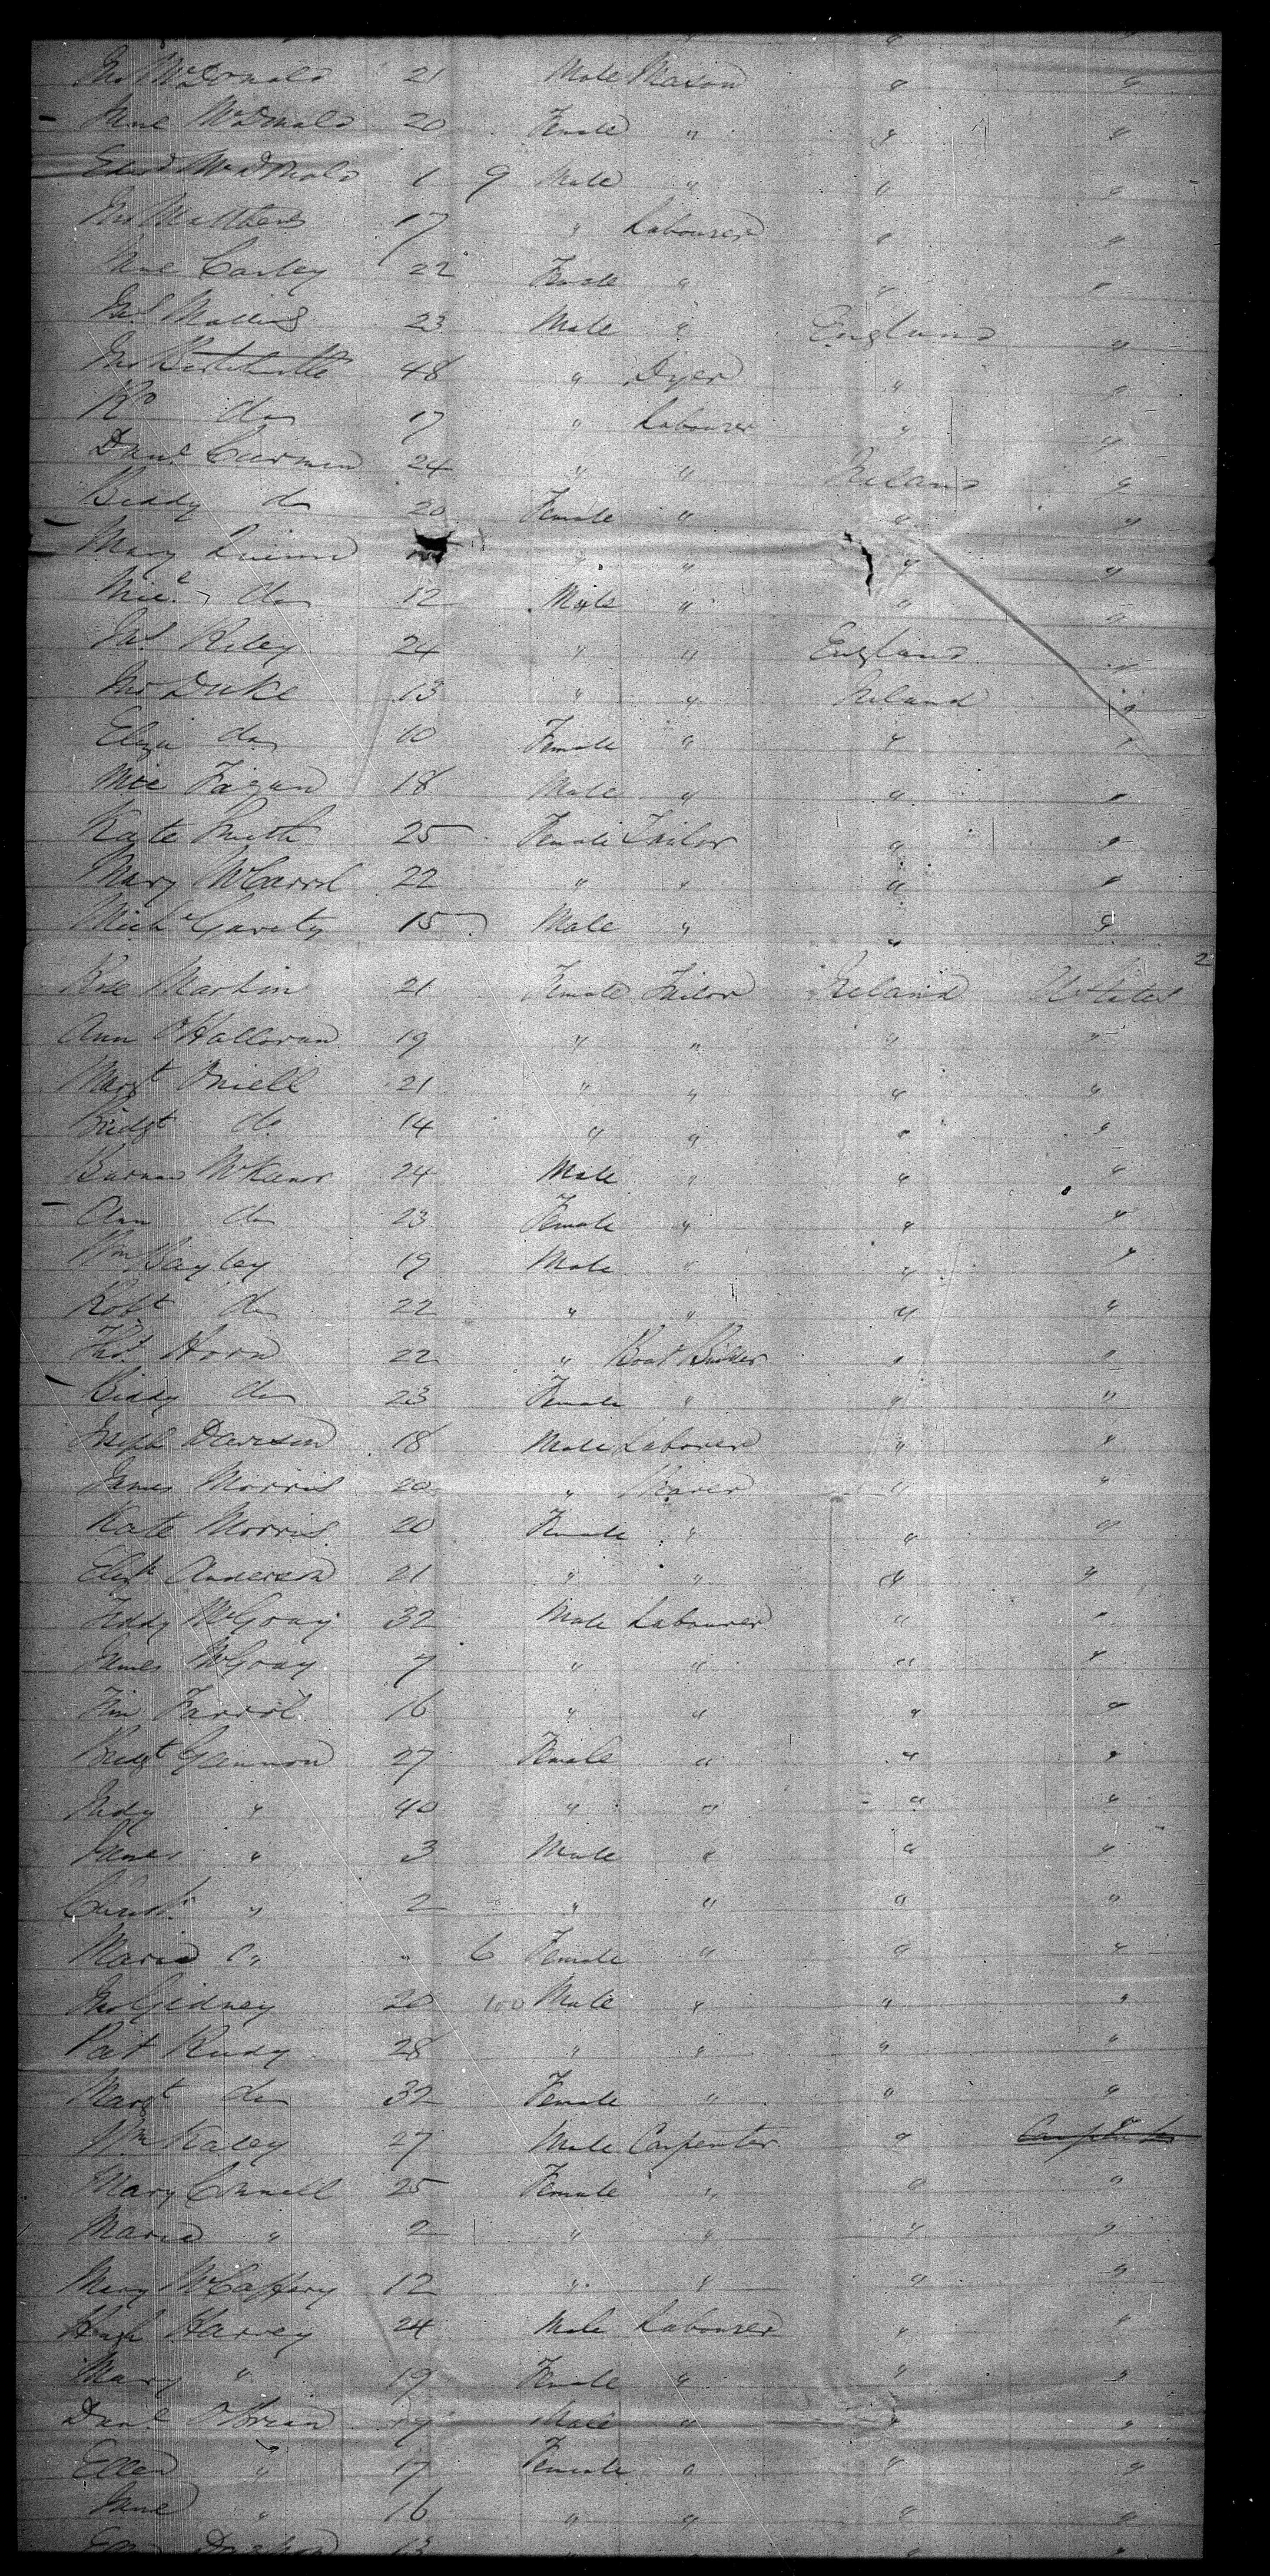 Jno McDonald 21 Male Mason " "
Jane McDonald 20 Female " " "
Edwd McDonald 1 9 Male " " "
Jno Matthews 17 " Labourer " "
Carley 22 Female " " "
Jas Mallins 23 Male " England "
Jno 48 " Dyer " "
Ro do 17 " Labourer " "
Danl Carmen 24 " " Ireland "
Biddy do 20 Female " " "
Mary Quinn " " " "
Micl do 12 Male " " "
Jas Riley 24 " " England "
Jno Duke 13 " " Ireland "
Eliza do 10 Female " " "
Mic Fagan 18 Male " " "
Kate Smith 25 Female Tailor " "
Mary McCarrol 22 " " " "
Mich Gavety 15 Male " " "
2
Rose Martin 21 Female Tailor Ireland U States
Ann O'Halloran 19 " " " "
Margt Oniell 21 " " " "
Bridgt do 14 " " " "
24 Male " " "
Ann do 23 Female " " "
Wm Bayley 19 Male " " "
Robt do 22 " " " "
Thos Horn 22 " Boat Builder " "
Biddy do 23 Female " " "
Joseph Davison 18 Male Laborer " "
James Morris 20 " Weaver " "
Kate Morris 20 Female " " "
Elizth Anderson 21 " " " "
Teddy McGoay 32 Male Labourer " "
James McGoay 7 " " " "
Tim Farrol 16 " " " "
Bridgt Gannon 27 Female " " "
Judy " 40 " " " "
James " 3 Male " " "
" 2 " " " "
Maria " " 6 Female " " "
Jno Gidney 20 100 Male " " "
Pat Rudy 28 " " " "
Margt do 32 Female " " "
Wm Kaley 27 Male Carpenter " Carpenter
Mary Connell 25 Female " " "
Maria " 2 " " " "
Mary McCaffery 12 " " " "
Hugh Harvey 24 Male Labourer " "
Mary " 19 Female " " "
Danl O'Brien 19 Male " " "
Ellen " 17 Female " " "
Jane " 16 " " " "
13